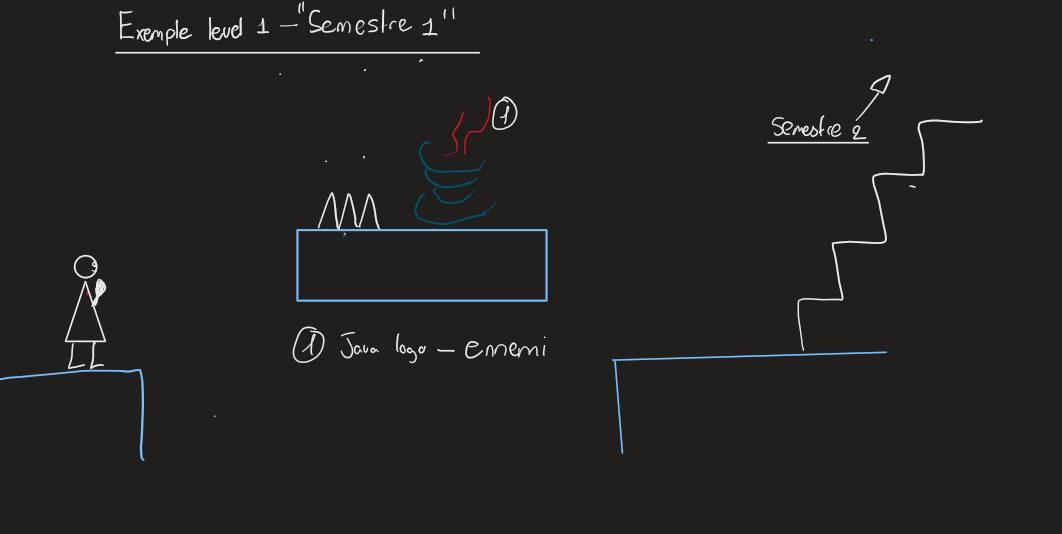 Exemple level 1 - "Semestre 1"
①
Semestre 2
① Java logo - ennemi